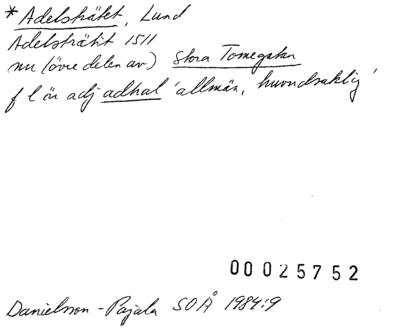 *Adelsträtet, Lund
Adelsträtit 1511
nu (övre delen av) Stora Tomegatan
f l är adj adhal 'allmän, huvudsaklig'
00025752
Danielsson-Pajala SOÅ 1984:9